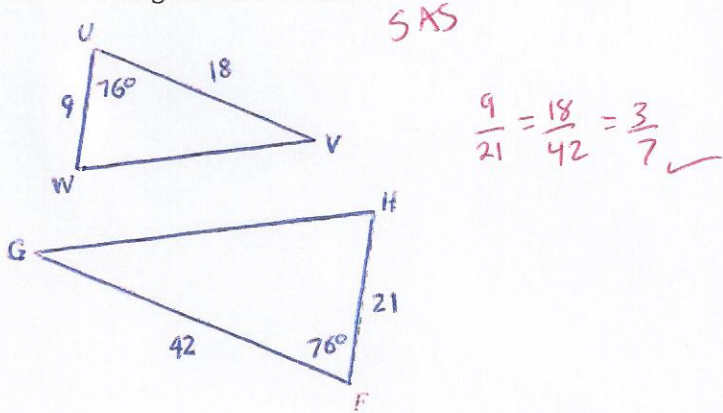 SAS
U
76°
18
9
V
W
9/21 = 18/42 = 3/7 ✓
H
G
21
42
76°
F